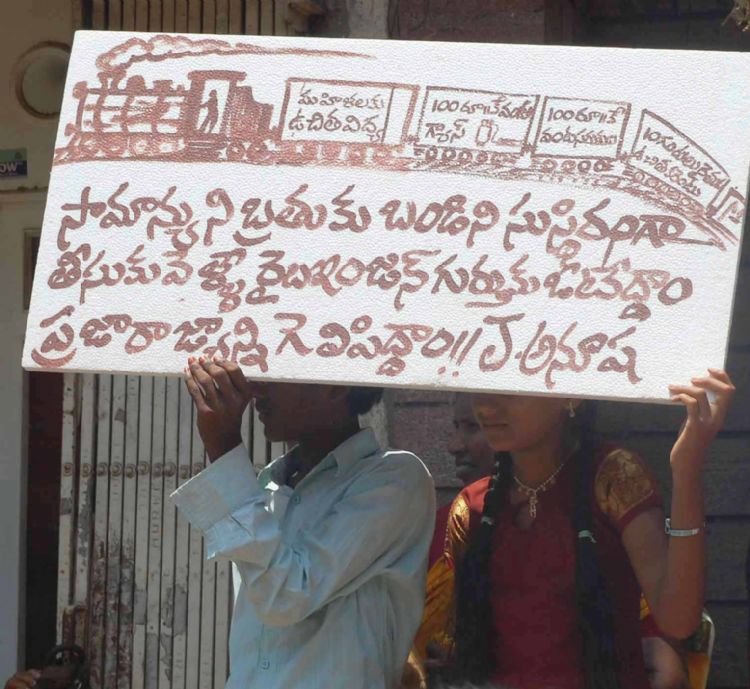 మహిళలకు
ఉచితవిద్య
100 రూ.లకే వంట
గ్యాస్
100 రూ.లకే
వంటసరుకులు
సామాన్యుని బ్రతుకు బండిని సుస్థిరంగా
తోసుకువెళ్ళే రైలుఇంజన్ గుర్తుకు ఓటేద్దాం
ప్రజారాజ్యాన్ని గెలిపిద్దాం!! J. అనూష